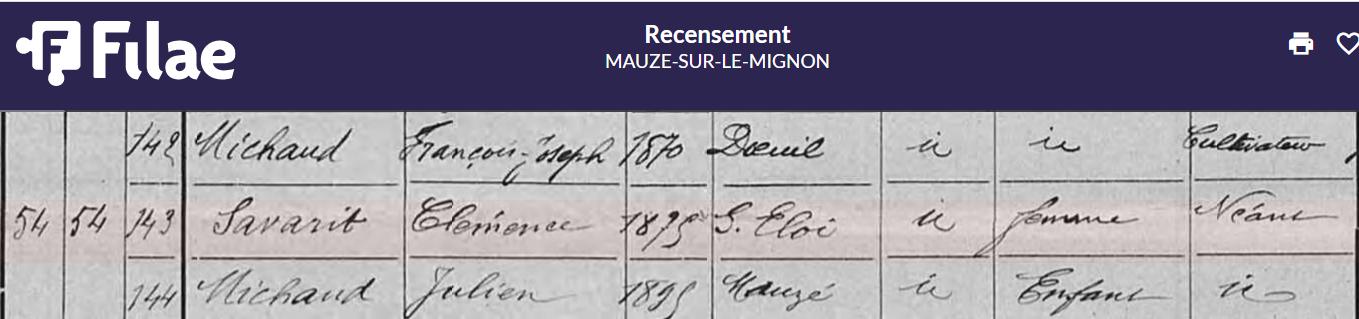 Filae
Recensement
MAUZE-SUR-LE-MIGNON
142 Michaud François-Joseph 1870 Dœuil it it Cultivateur
54 54 143 Savarit Clémence 1875 S. Eloi it femme Néant
144 Michaud Julien 1895 Mauzé it Enfant it